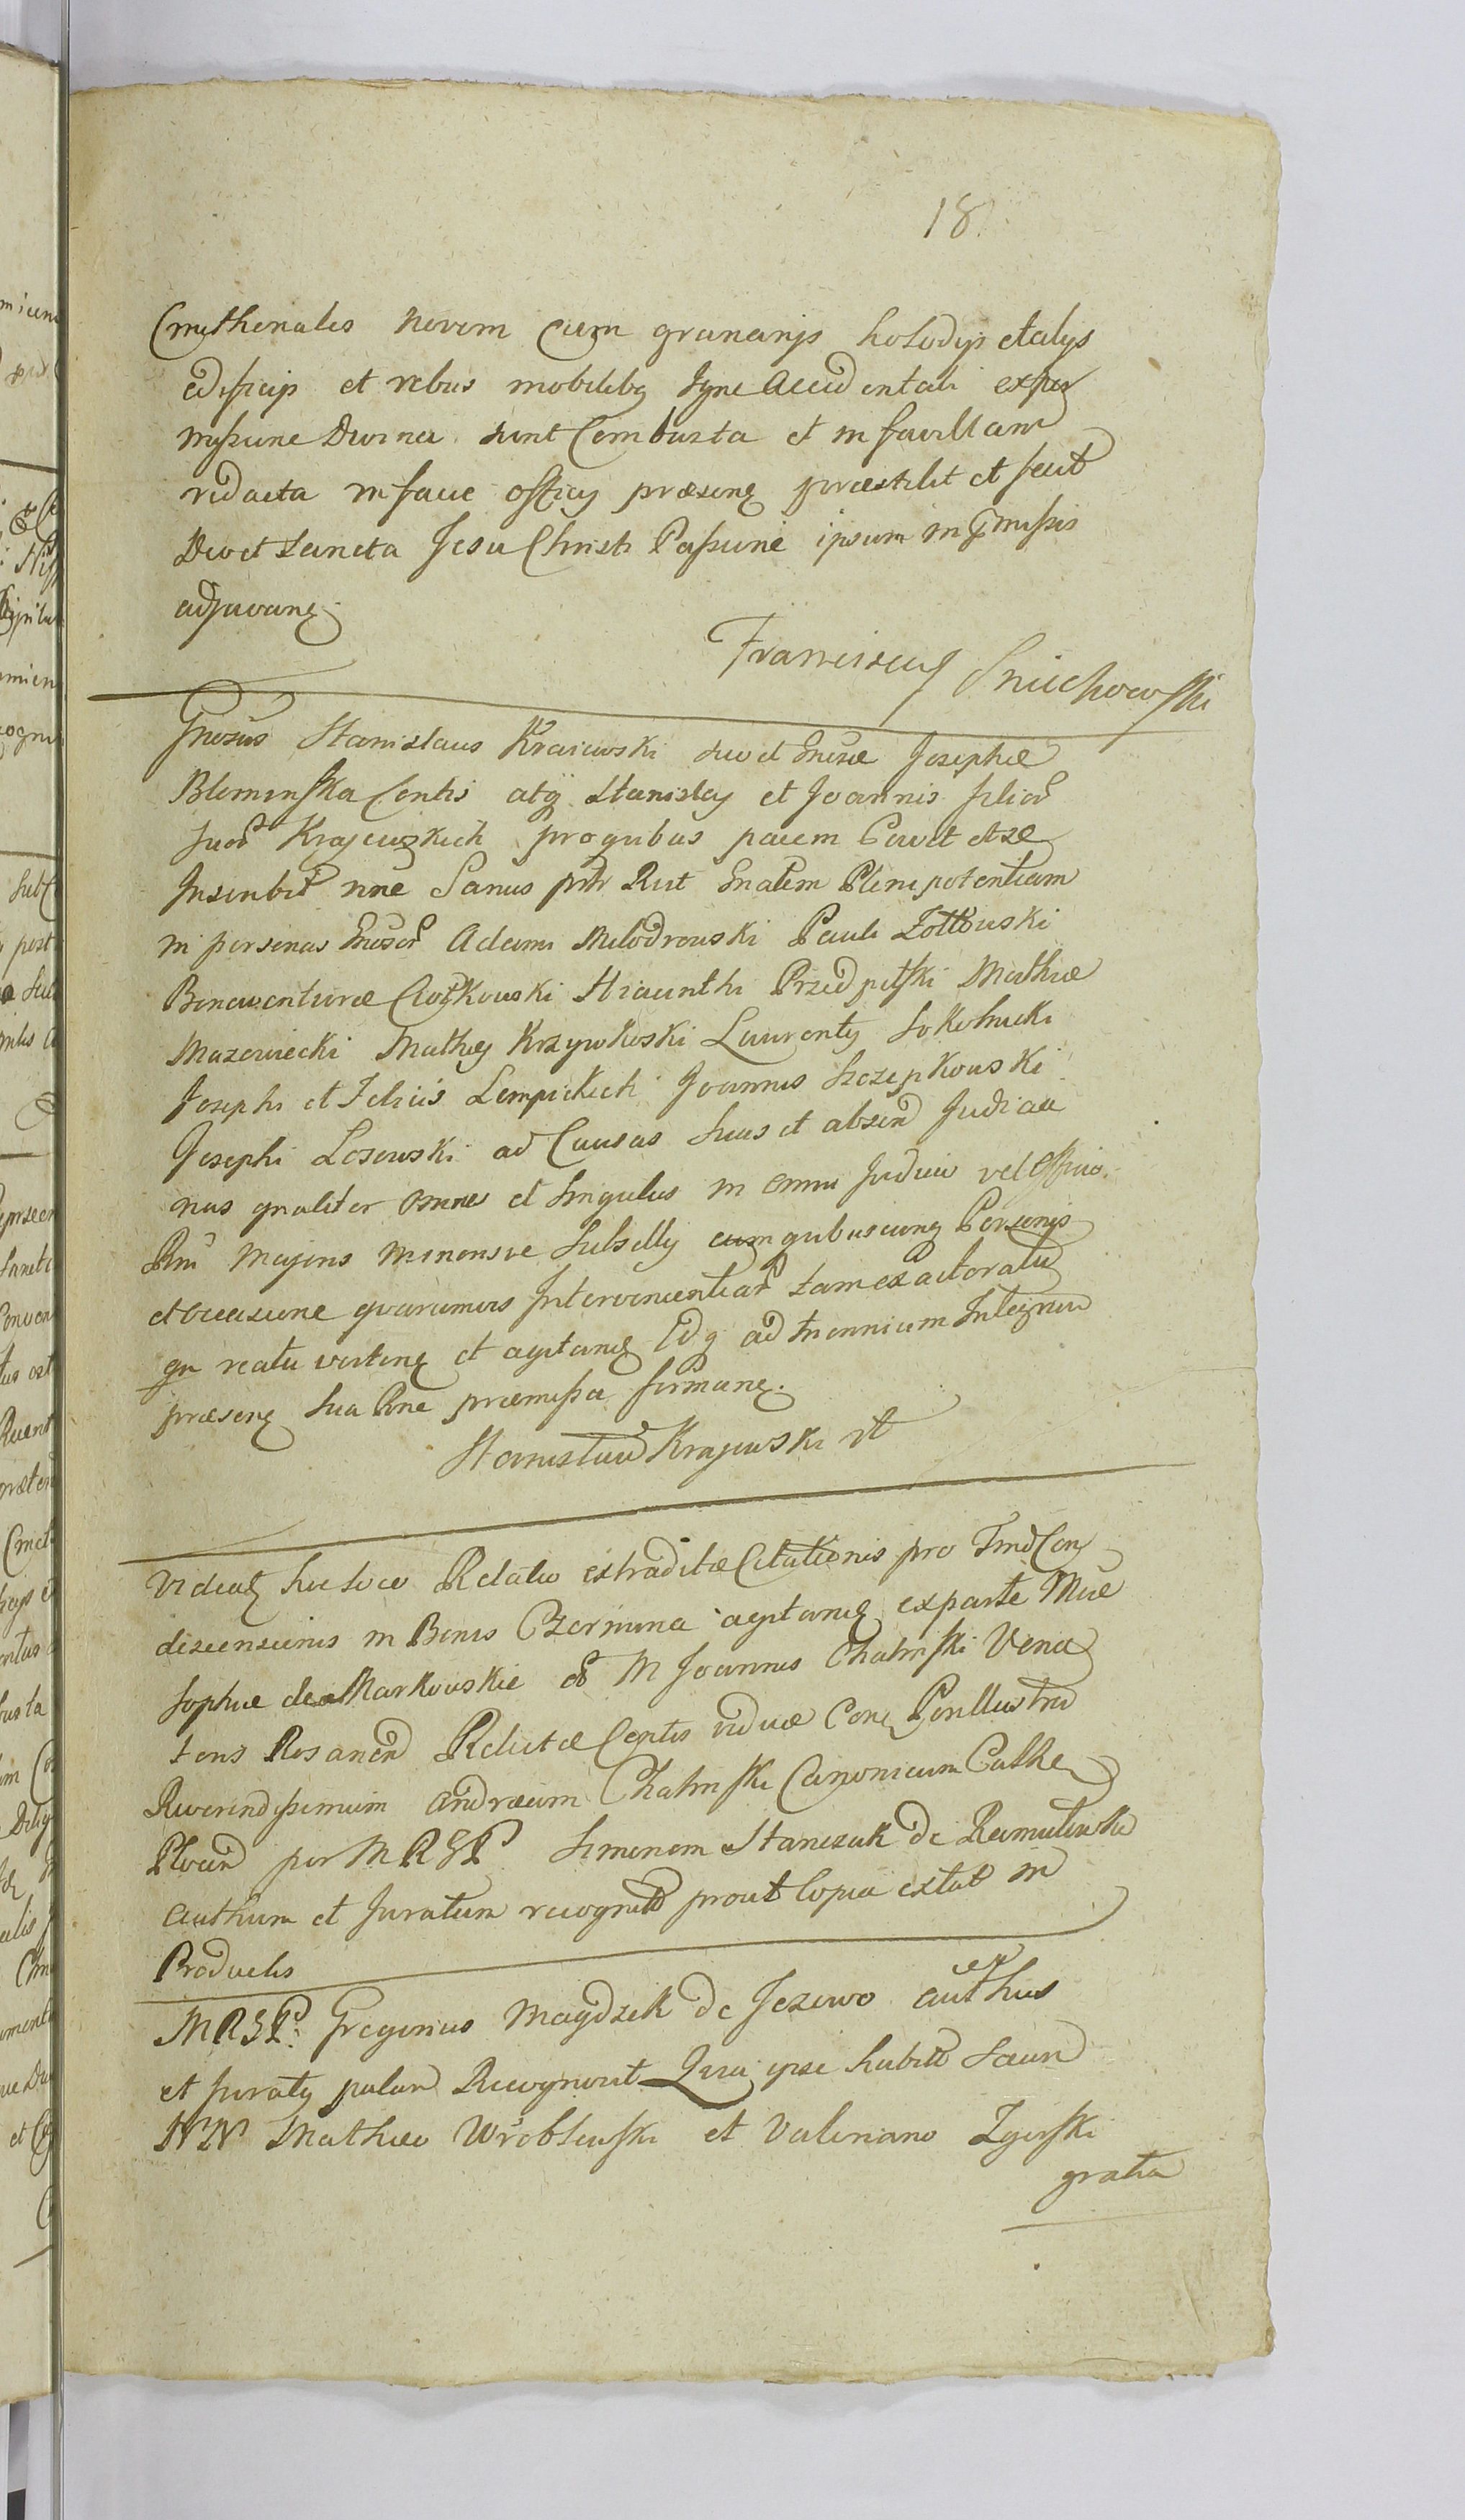 18.
Cmethonales novem cum granarijs holodijs et alijs
edificijs et rebus mobilibq igne accidentali ex per
missione Divina sunt combusta et in favillam
redacta in facie officij præsenq præstitit et fecit
Deo et Sancta Jesu Christi Passione ipsum in pmissis
adjuvanq.
Franciscus Sniechowski
Gnosus Stanislaus Kraiewski suo et Gnosæ Josephæ
Bleminska Contis atq Stanislaj et Joannis filior
suor Krajewskich pro quibus pacem Cavet et se
Inscribit nne Sanus pntr Rcit Gnalem Plenipotentiam
in personas Gnosor Adami Milodrowski Pauli Zottowski
Bonaventuræ Hiacinthi Przedpełski Mathiæ
Mazowiecki Mathej Krzywkoski Laurentij Sokolnicki
Josephi et Felicis Lempickich Joannis Szczepkowski
Josephi Losowski ad Causas suas et absen Judicia
nas gnaliter omnes et singulas in omni Judicio vel Officio
Rni Majoris minorisve Subsellij cum quibuscunq Personis
et occasione quarumvis Intervenientiar tam ex actoratu
qu reatu vertenq et agitanq Idq ad triennium Integrum
præsenq sua Rne præmissa firmanq.
Stanisław Krajewski rt
Videatq hic loco Relatio extraditæ Citationis pro Tmo Con
discensionis in Bonis Czernina agitanq ex parte Mcæ
Sophiæ de Markowskie M Joannis Chalinski Vena
toris Rosanen Relictæ Contis viduæ Con Perillustrem
Reverendissimum Andræam Chalinski Canonicum Cathe
Plocen per MRGP Simonem Stanczak de
authum et Juratum recognita prout Copia extat in
Productis
MRGP. Gregorius Magdzik de Jezewo authus
et juratq palam Recognovit Quia ipse habita secum
NN Mathæo Wroblewski et Valeriano Zgirski
gratia